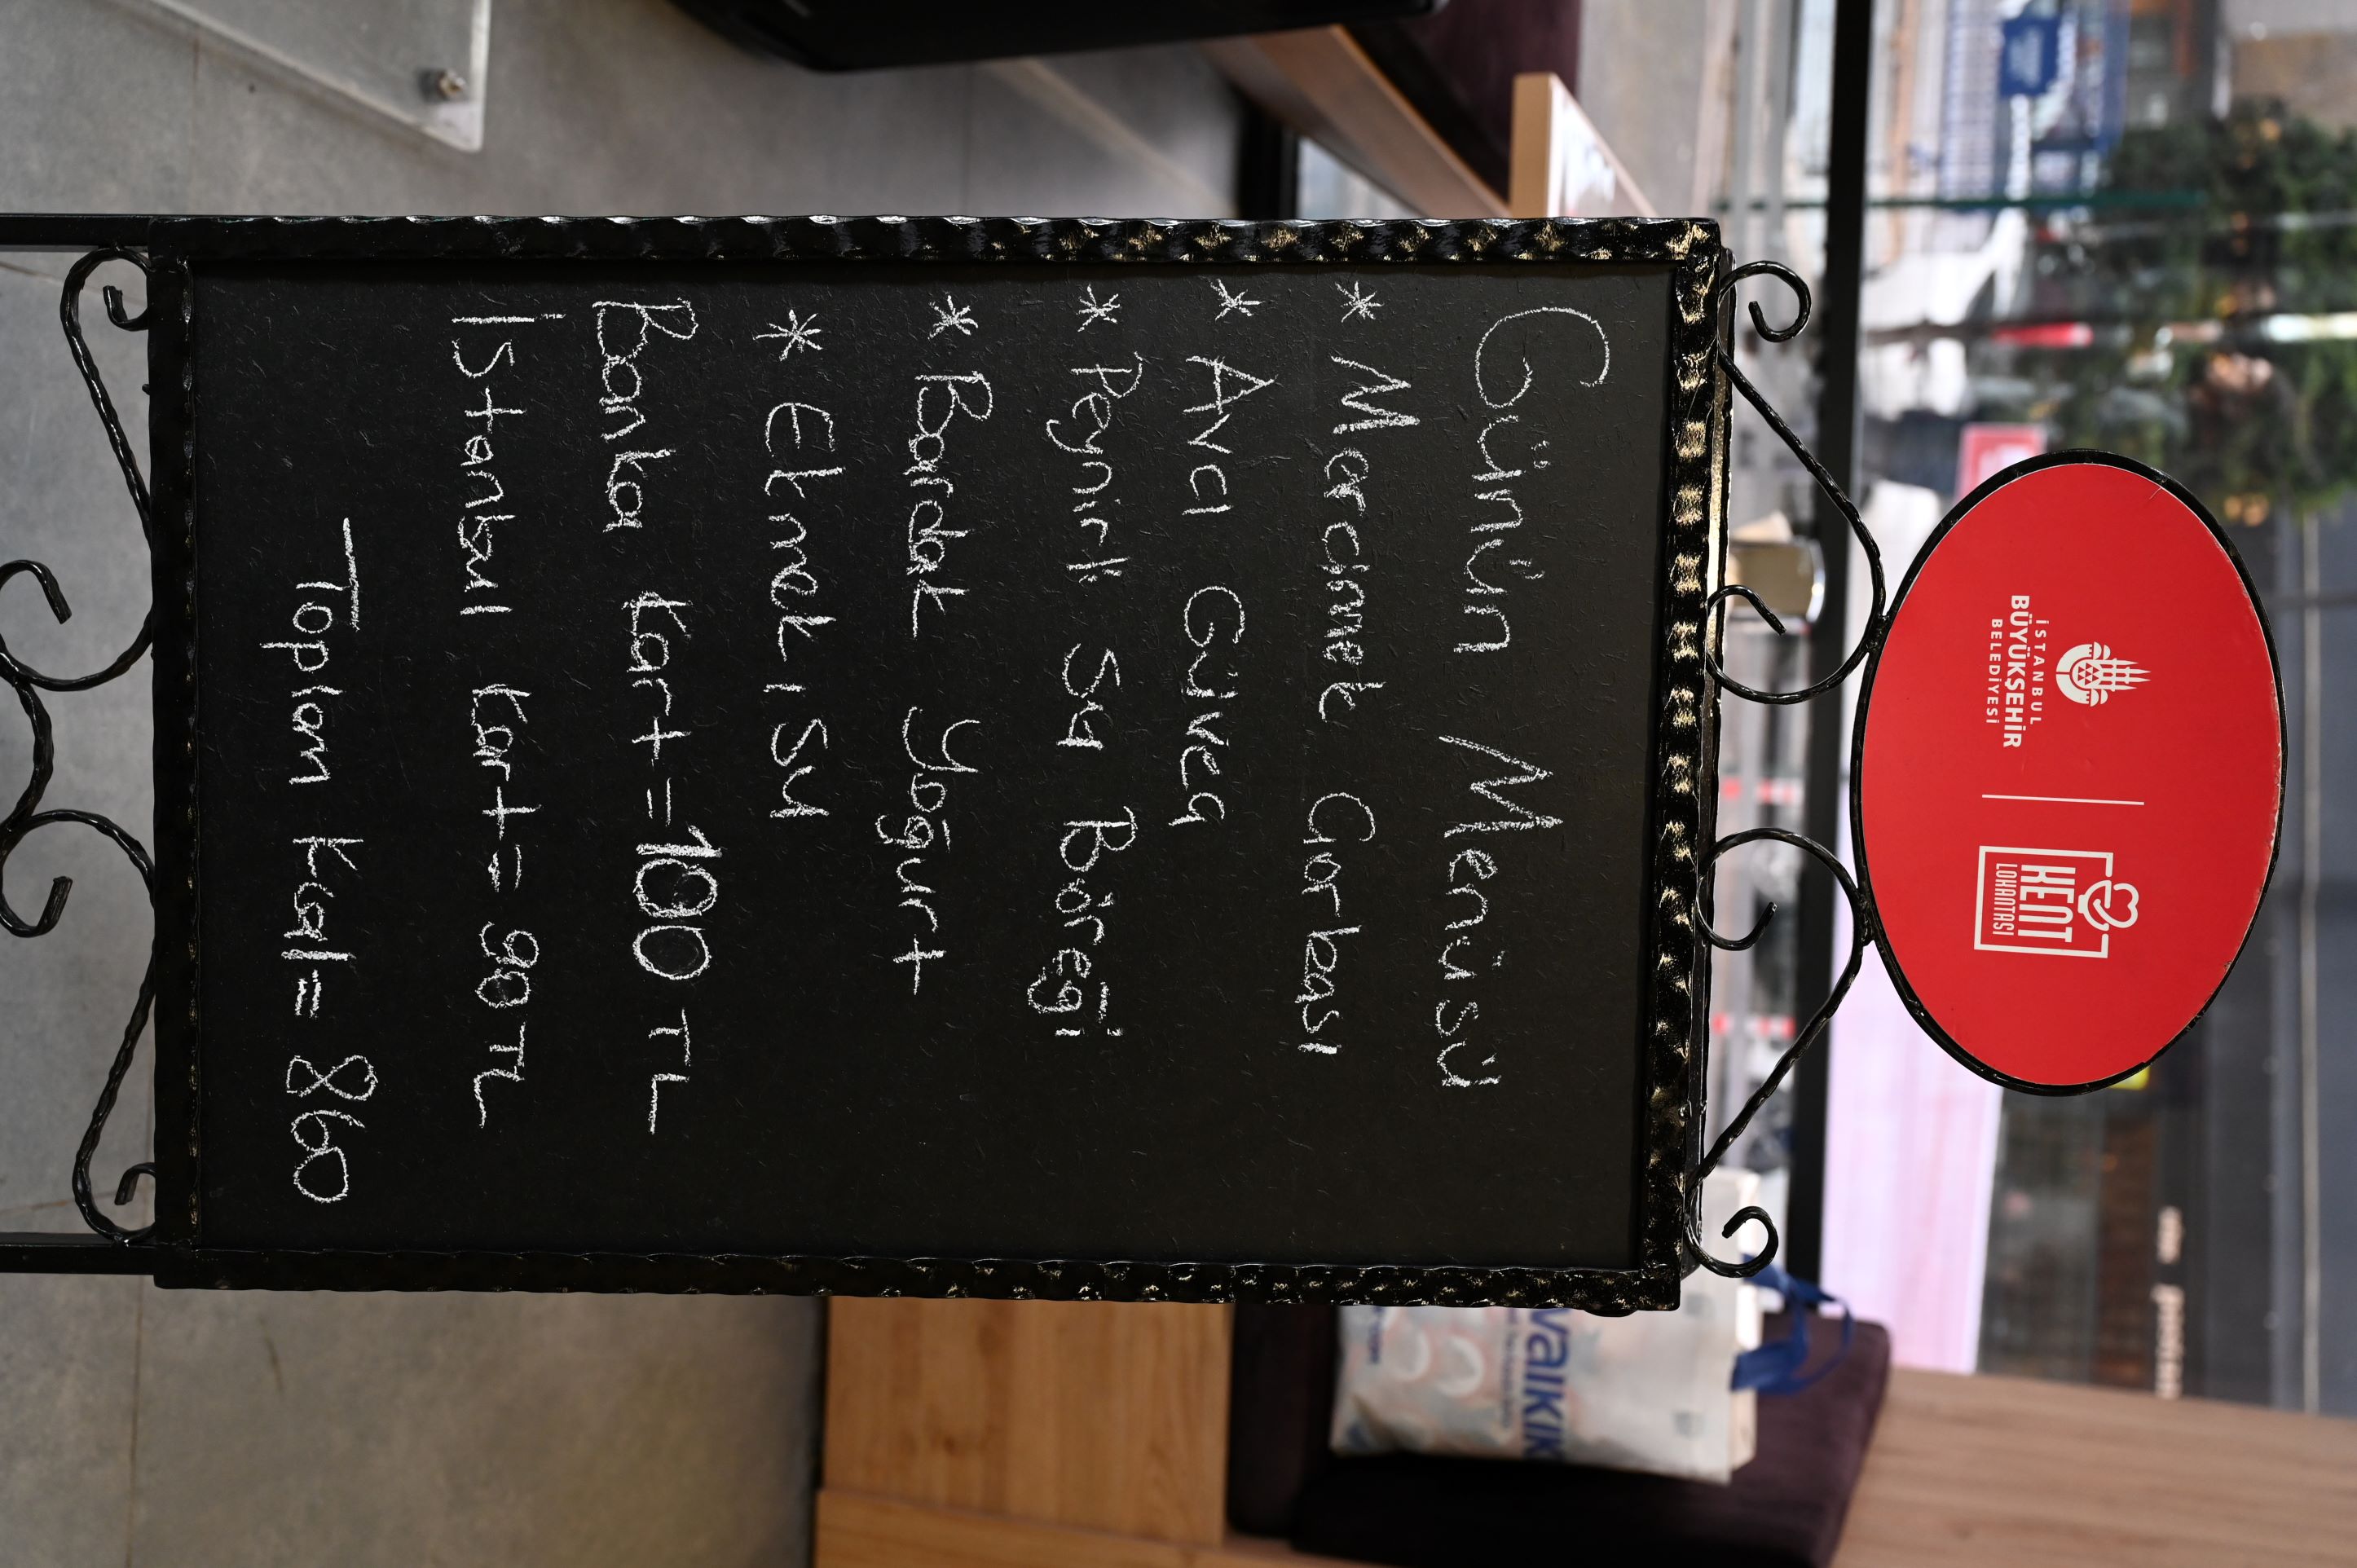 İSTANBUL
BÜYÜKŞEHİR
BELEDİYESİ
KENT
LOKANTASI
Günün Menüsü
* Mercimek Çorbası
* Avcı Güveç
* Peynirli Su Böreği
* Bardak Yoğurt
* Ekmek, Su
Banka Kart = 100 TL
İstanbul Kart = 90 TL
Toplam Kcal = 860